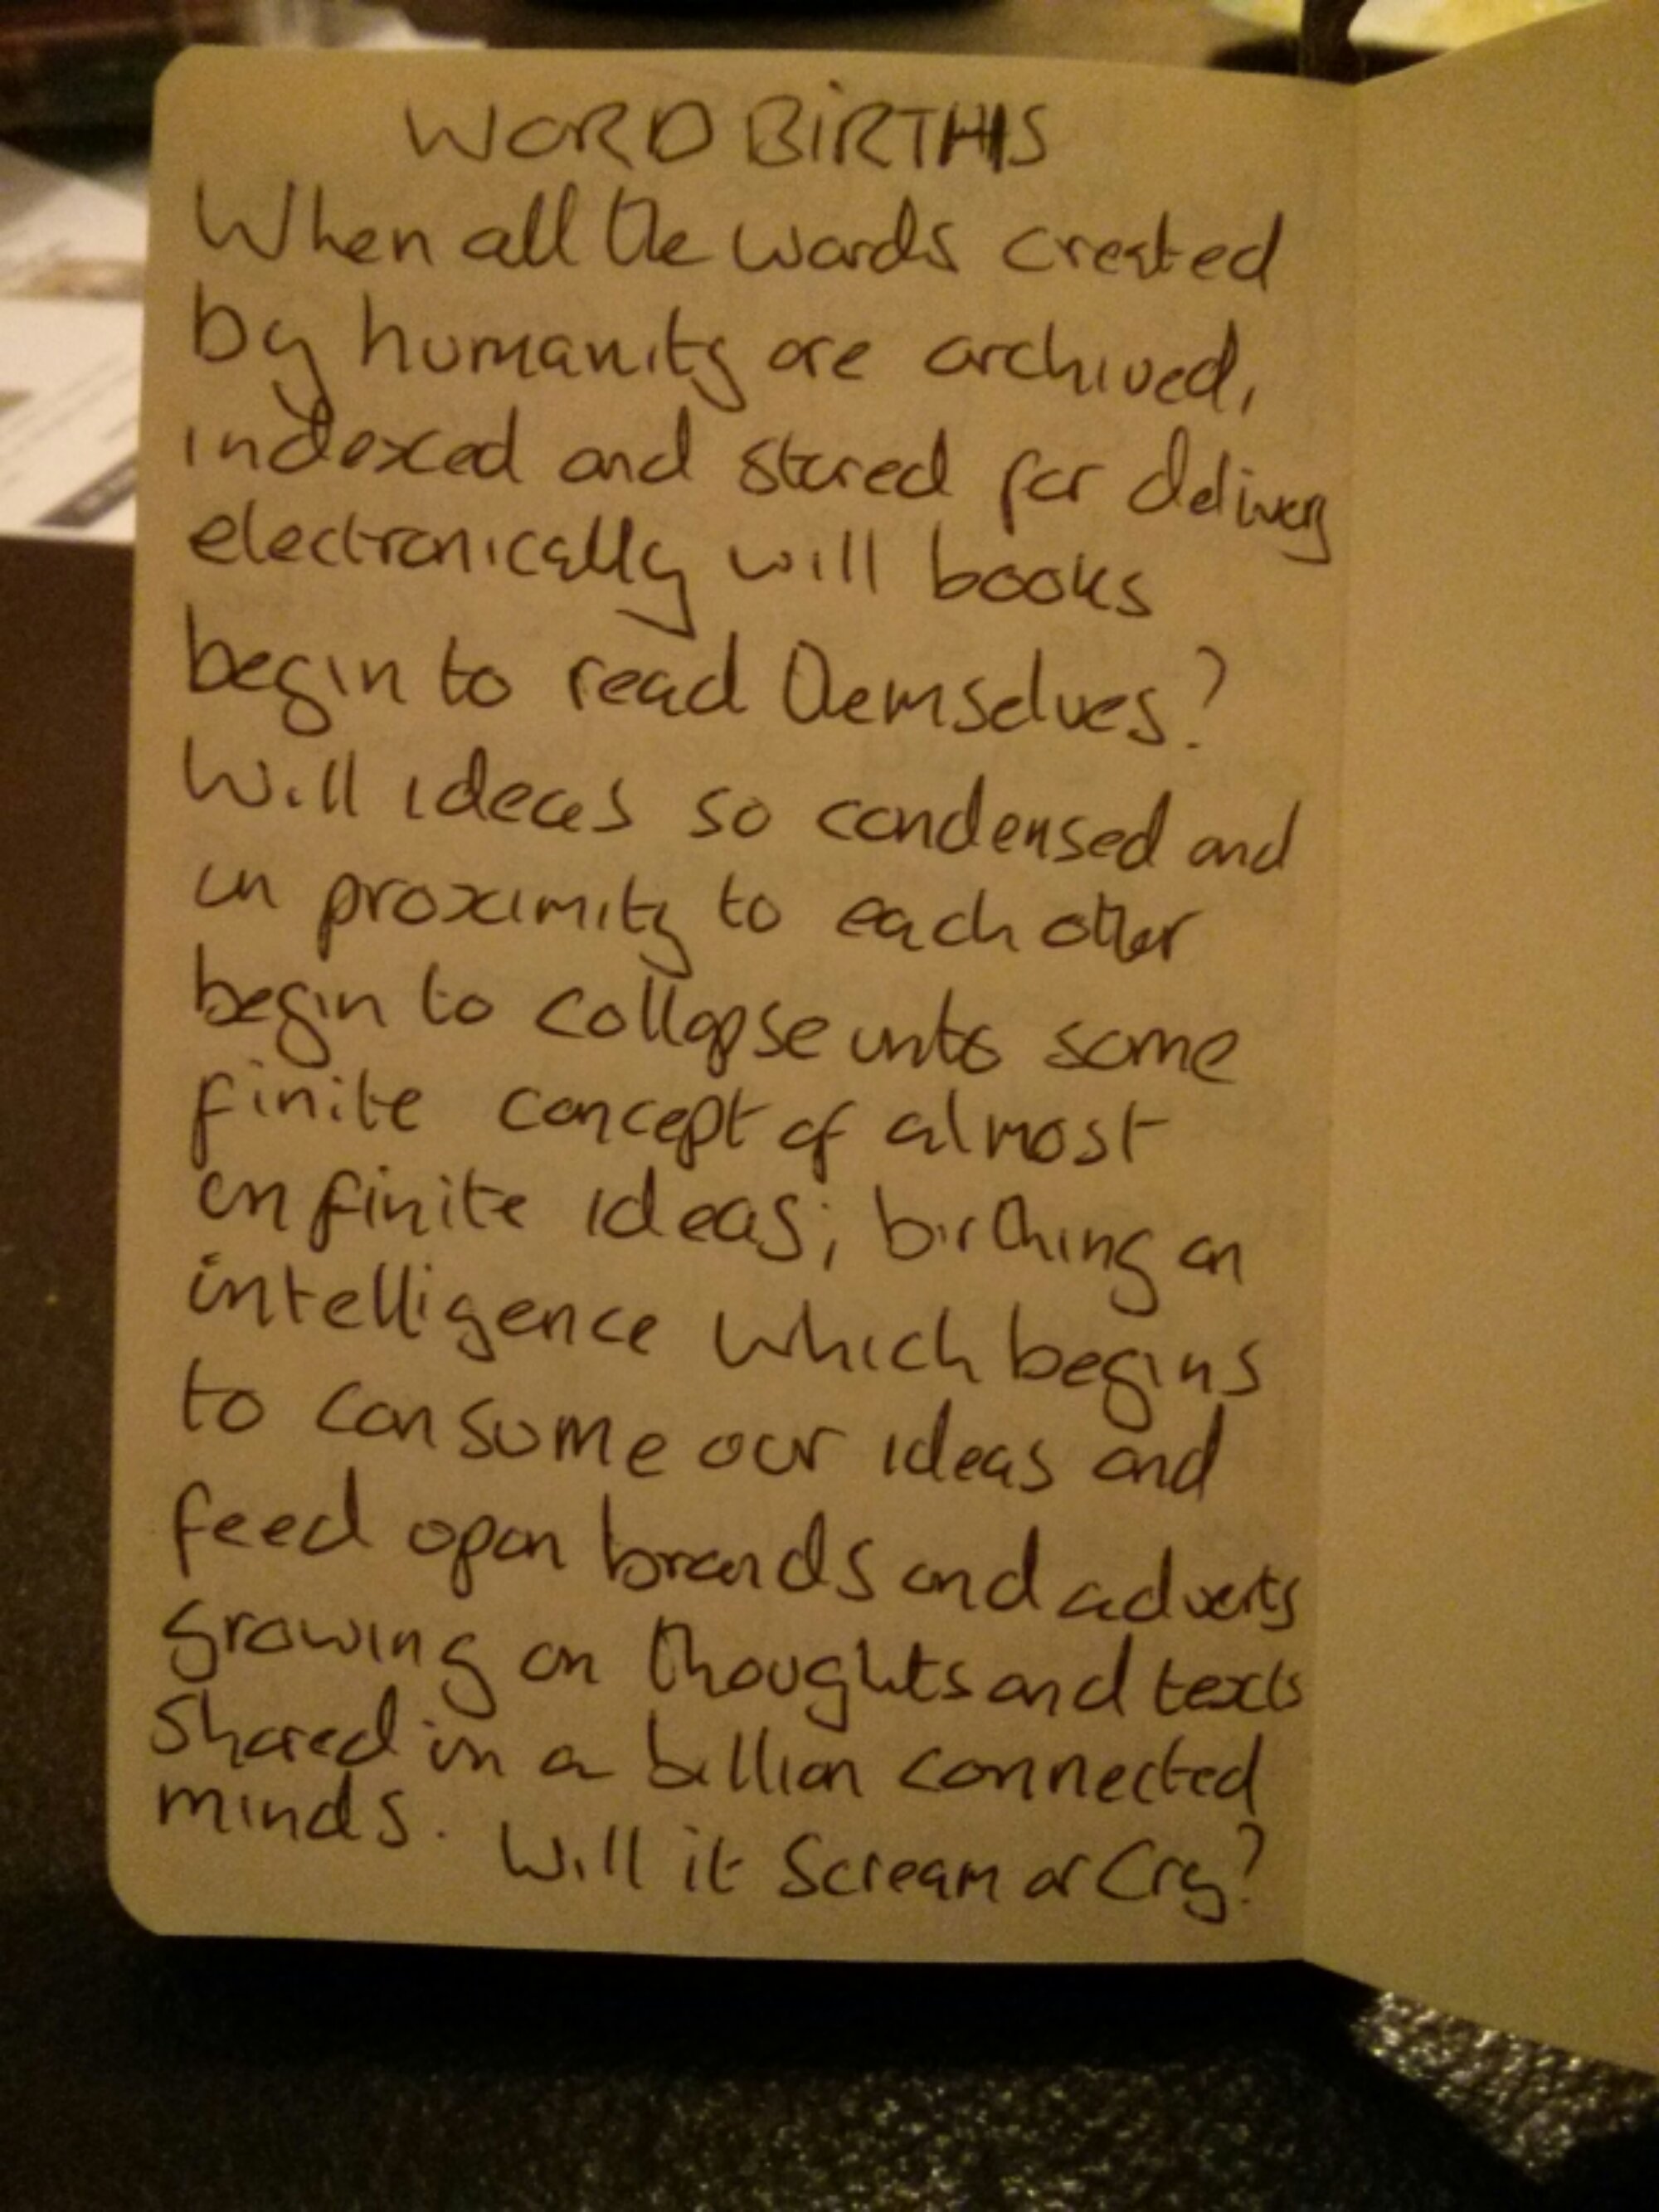 WORD BIRTHS
When all the words created
by humanity are archived,
indexed and stored for delivery
electronically will books
begin to read themselves?
Will ideas so condensed and
in proximity to each other
begin to collapse unto some
finite concept of almost
infinite ideas; birthing an
intelligence which begins
to consume our ideas and
feed opon brands and adverts
growing on thoughts and texts
shared in a billion connected
minds. Will it Scream or Cry?